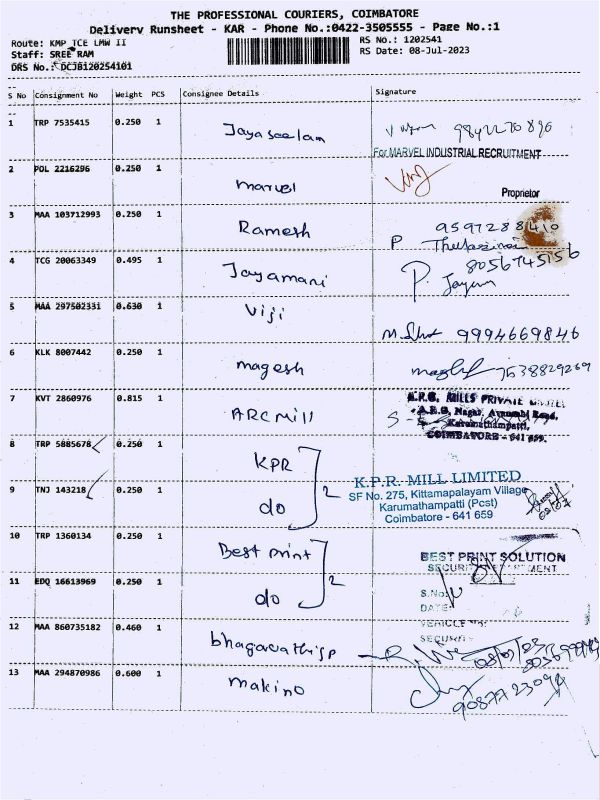 THE PROFESSIONAL COURIERS, COIMBATORE
Delivery Runsheet - KAR - Phone No.:0422-3505555 - Page No.:1
Route: KMP TCE LMW II
RS No.: 1202541
Staff: SREE RAM
RS Date: 08-Jul-2023
DRS No.: DCJB120254101
S No Consignment No Weight PCS Consignee Details Signature
1 TRP 7535415 0.250 1 Jayaseelan 9842270896
For MARVEL INDUSTRIAL RECRUITMENT
2 POL 2216296 0.250 1 marvel
Proprietor
3 MAA 103712993 0.250 1 Ramesh 9597288410
P
4 TCG 20063349 0.495 1 Jayamani 8056745156
P. Jayam
5 MAA 297502331 0.630 1 Viji 9994669846
6 KLK 8007442 0.250 1 magesh 7538829269
7 KVT 2860976 0.815 1 ARC mill
MILLS PRIVATE LIMITED
A.R.G. Nagar, Avanashi Road,
Karumathampatti,
COIMBATORE - 641 659.
8 TRP 5885678 0.250 1 KPR
2
K.P.R. MILL LIMITED
SF No. 275, Kittamapalayam Village
9 TNJ 143218 0.250 1 do
Karumathampatti (Post)
Coimbatore - 641 659
10 TRP 1360134 0.250 1 Best print
2
BEST PRINT SOLUTION
SECURITY DEPARTMENT
11 EDQ 16613969 0.250 1 do
S.No:
DATE:
VEHICLE
SECURITY
12 MAA 860735182 0.460 1 bhagavathi sp
08/07/23
13 MAA 294870986 0.600 1 makino